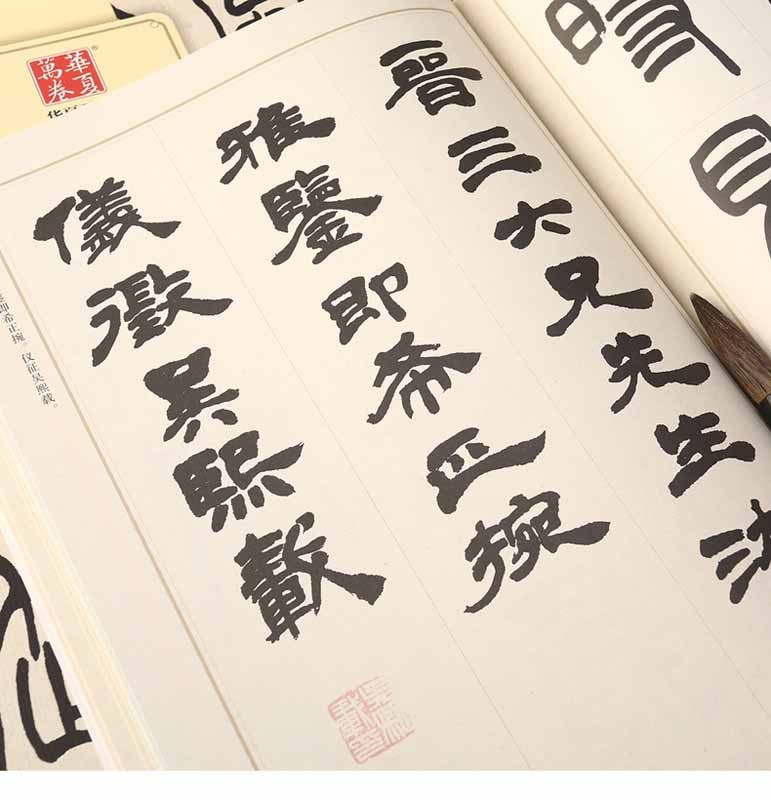 晋三大兄先生法
雅鑒即希正捥
儀徵吳熙載
即希正捥。仪征吴熙载。
華夏
萬卷